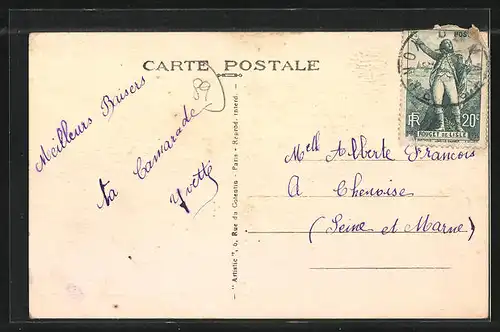 CARTE POSTALE
89
Meilleurs Baisers
ta Camarade
Yvette
"Artistic", 6, Rue du Cotentin - Paris - Reprod. interd.
Mell Alberte Francois
A Chenoise
(Seine et Marne)
POS
RF 20c
ROUGET DE LISLE